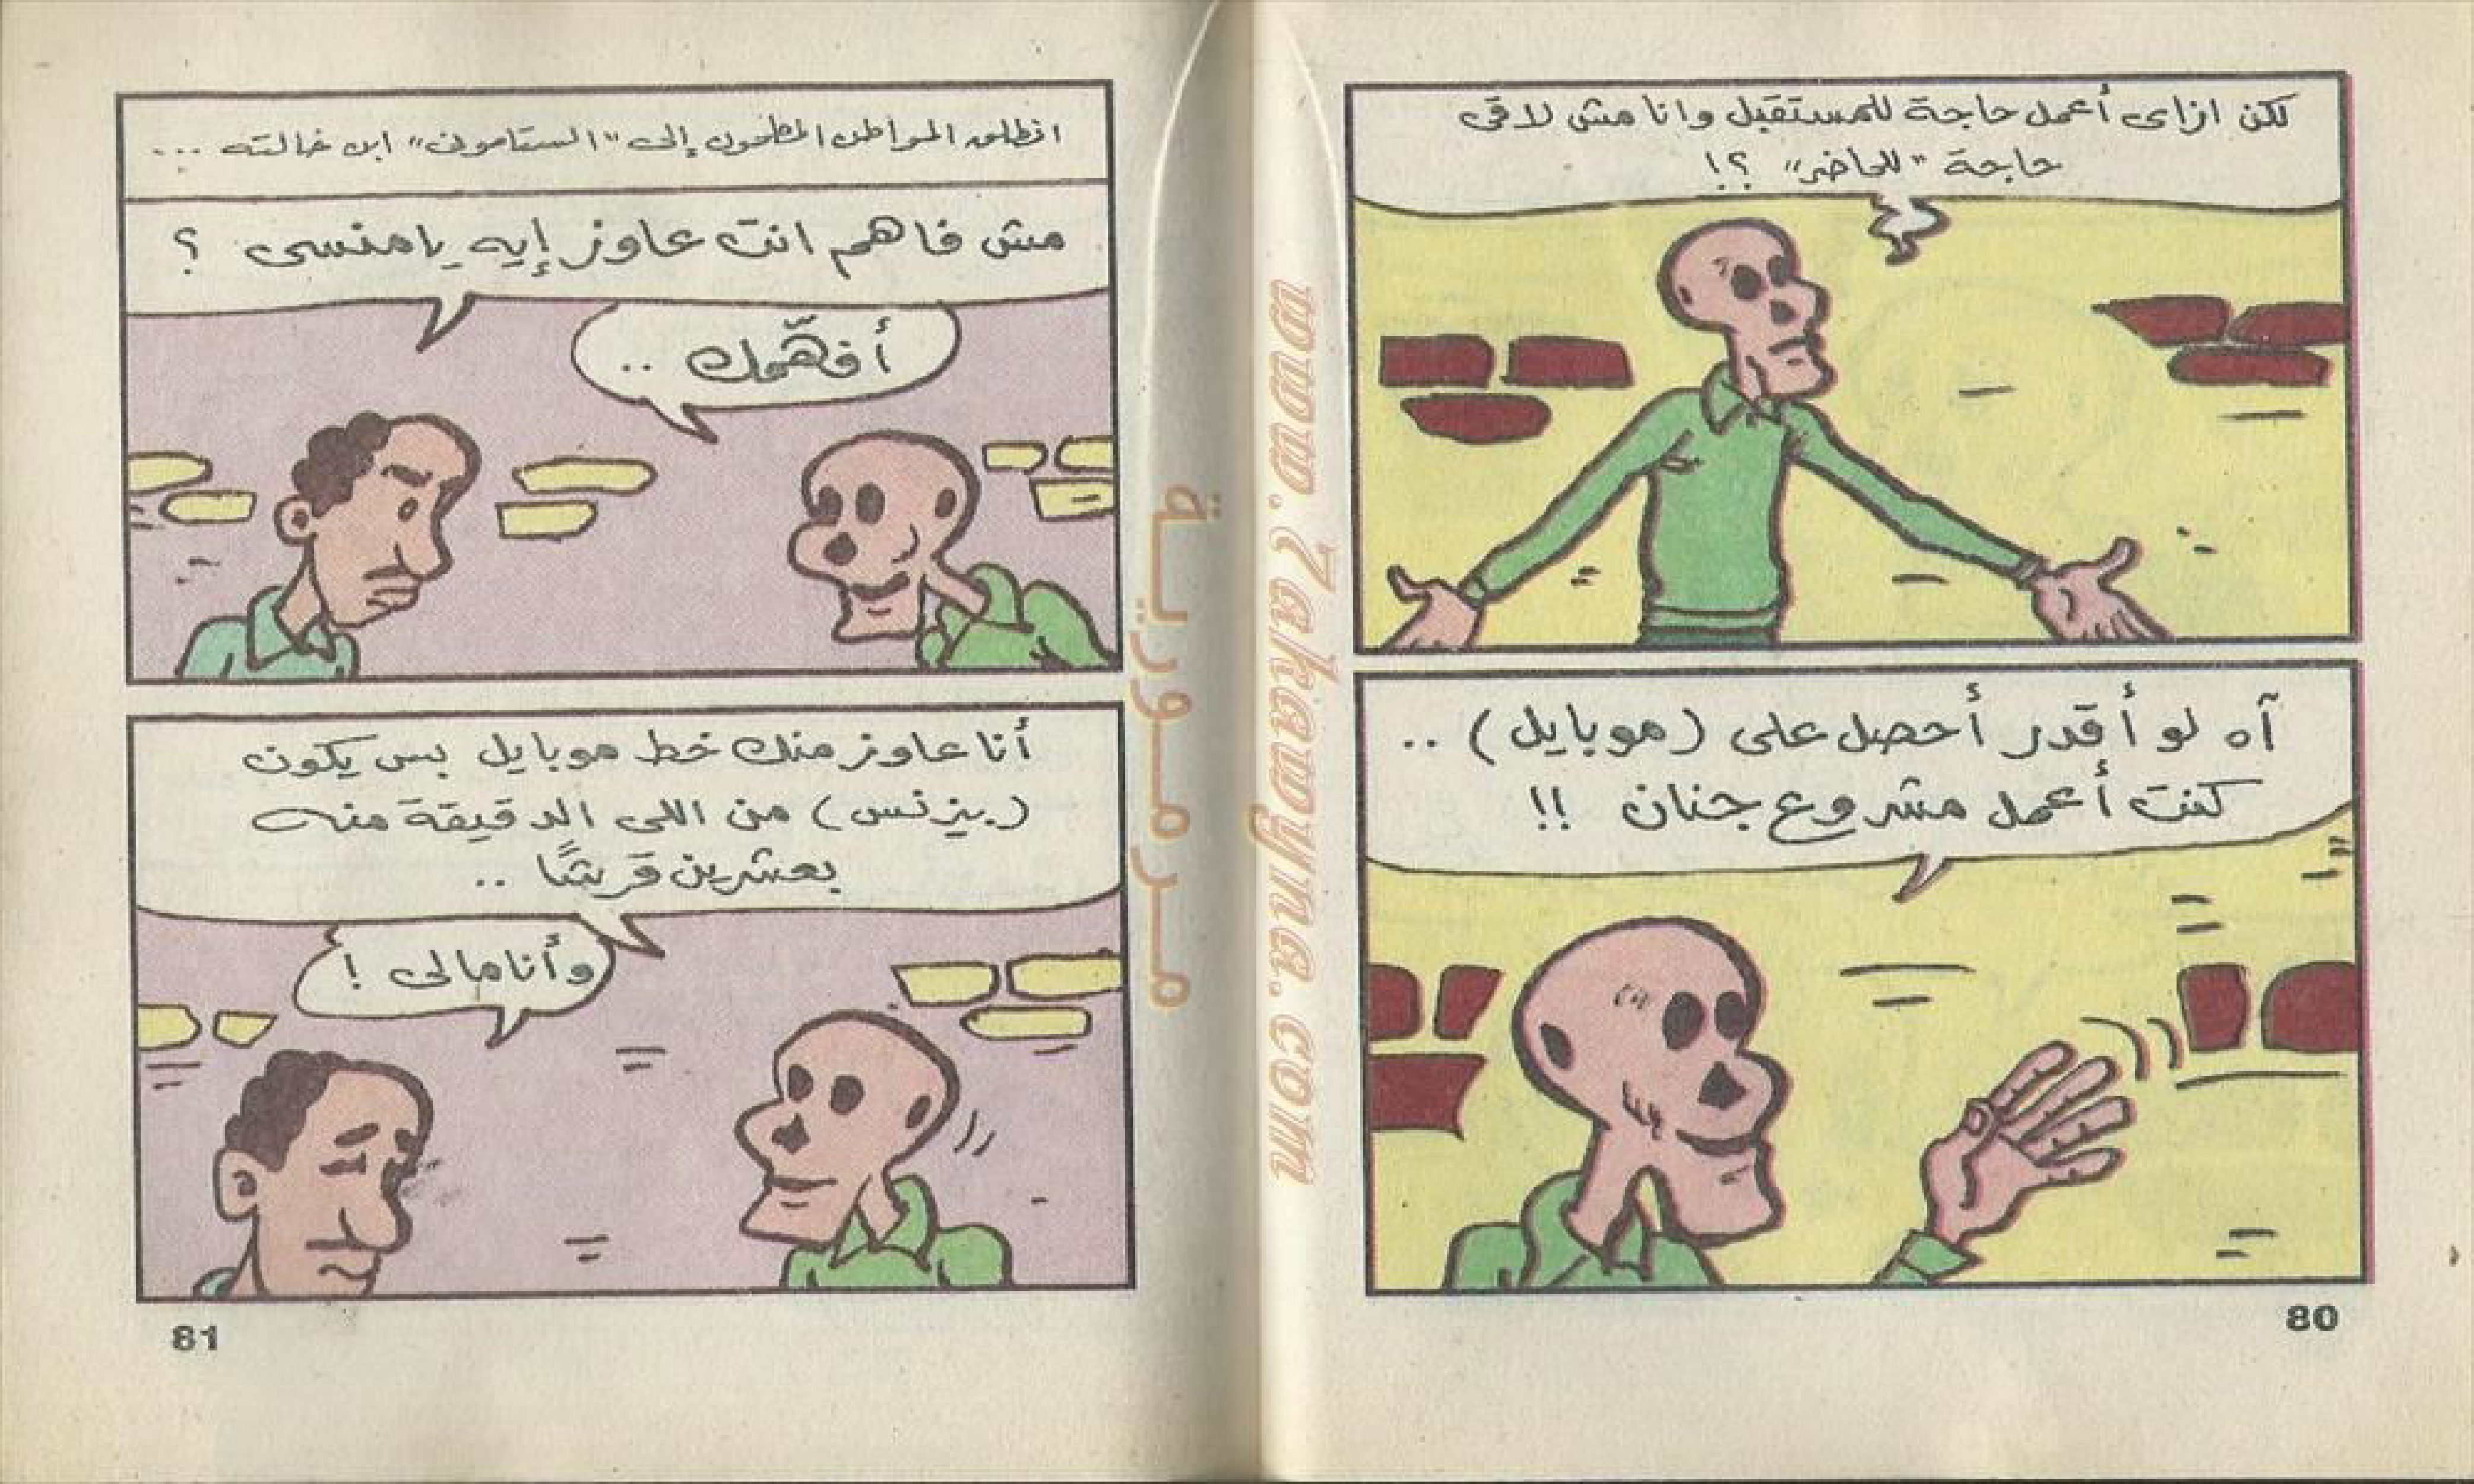 لكن ازاى أعمل حاجة للمستقبل وانا مش لاقى
حاجة "للحاضر" ؟!
آه لو أقدر أحصل على (موبايل) ..
كنت أعمل مشروع جنان !!
80
انطلق المواطن المطحون إلى "الستاموني" ابن خالته ...
مش فاهم انت عاوز إيه يا منسى ؟
أفهّمك ..
أنا عاوز منك خط موبايل بس يكون
(بيزنس) من اللى الدقيقة منه
بعشرين قرشًا ..
وأنا مالى !
81
مرمورية
www.7akawyna.com